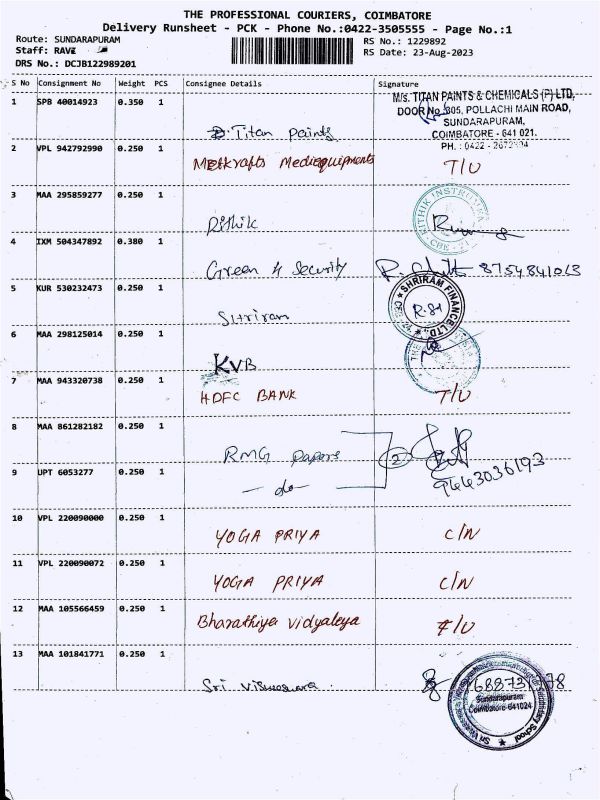 THE PROFESSIONAL COURIERS, COIMBATORE
Delivery Runsheet - PCK - Phone No.:0422-3505555 - Page No.:1
Route: SUNDARAPURAM
RS No.: 1229892
Staff: RAVI
RS Date: 23-Aug-2023
DRS No.: DCJB122989201
S No Consignment No Weight PCS Consignee Details Signature
M/s. TITAN PAINTS & CHEMICALS (P) LTD,
DOOR No. 305, POLLACHI MAIN ROAD,
SUNDARAPURAM,
COIMBATORE - 641 021.
PH. : 0422 -
1 SPB 40014923 0.350 1 Titan paints
2 VPL 942792990 0.250 1 Mediequipments T/U
3 MAA 295859277 0.250 1 Rithik
RITHIK
CBE - 21
4 IXM 504347892 0.380 1 Green 4 Security 8754841013
5 KUR 530232473 0.250 1 Sriram
SHRIRAM FINANCE LTD.,
6 MAA 298125014 0.250 1 KVB
7 MAA 943320738 0.250 1 HDFC BANK T/U
8 MAA 861282182 0.250 1 RMG papers 2
9 UPT 6053277 0.250 1 - do - 9443036193
10 VPL 220090000 0.250 1 YOGA PRIYA C/N
11 VPL 220090072 0.250 1 YOGA PRIYA C/N
12 MAA 105566459 0.250 1 Bharathiya Vidyaleya F/U
13 MAA 101841771 0.250 1 Sri Visweswara
Sundarapuram
Coimbatore-641024